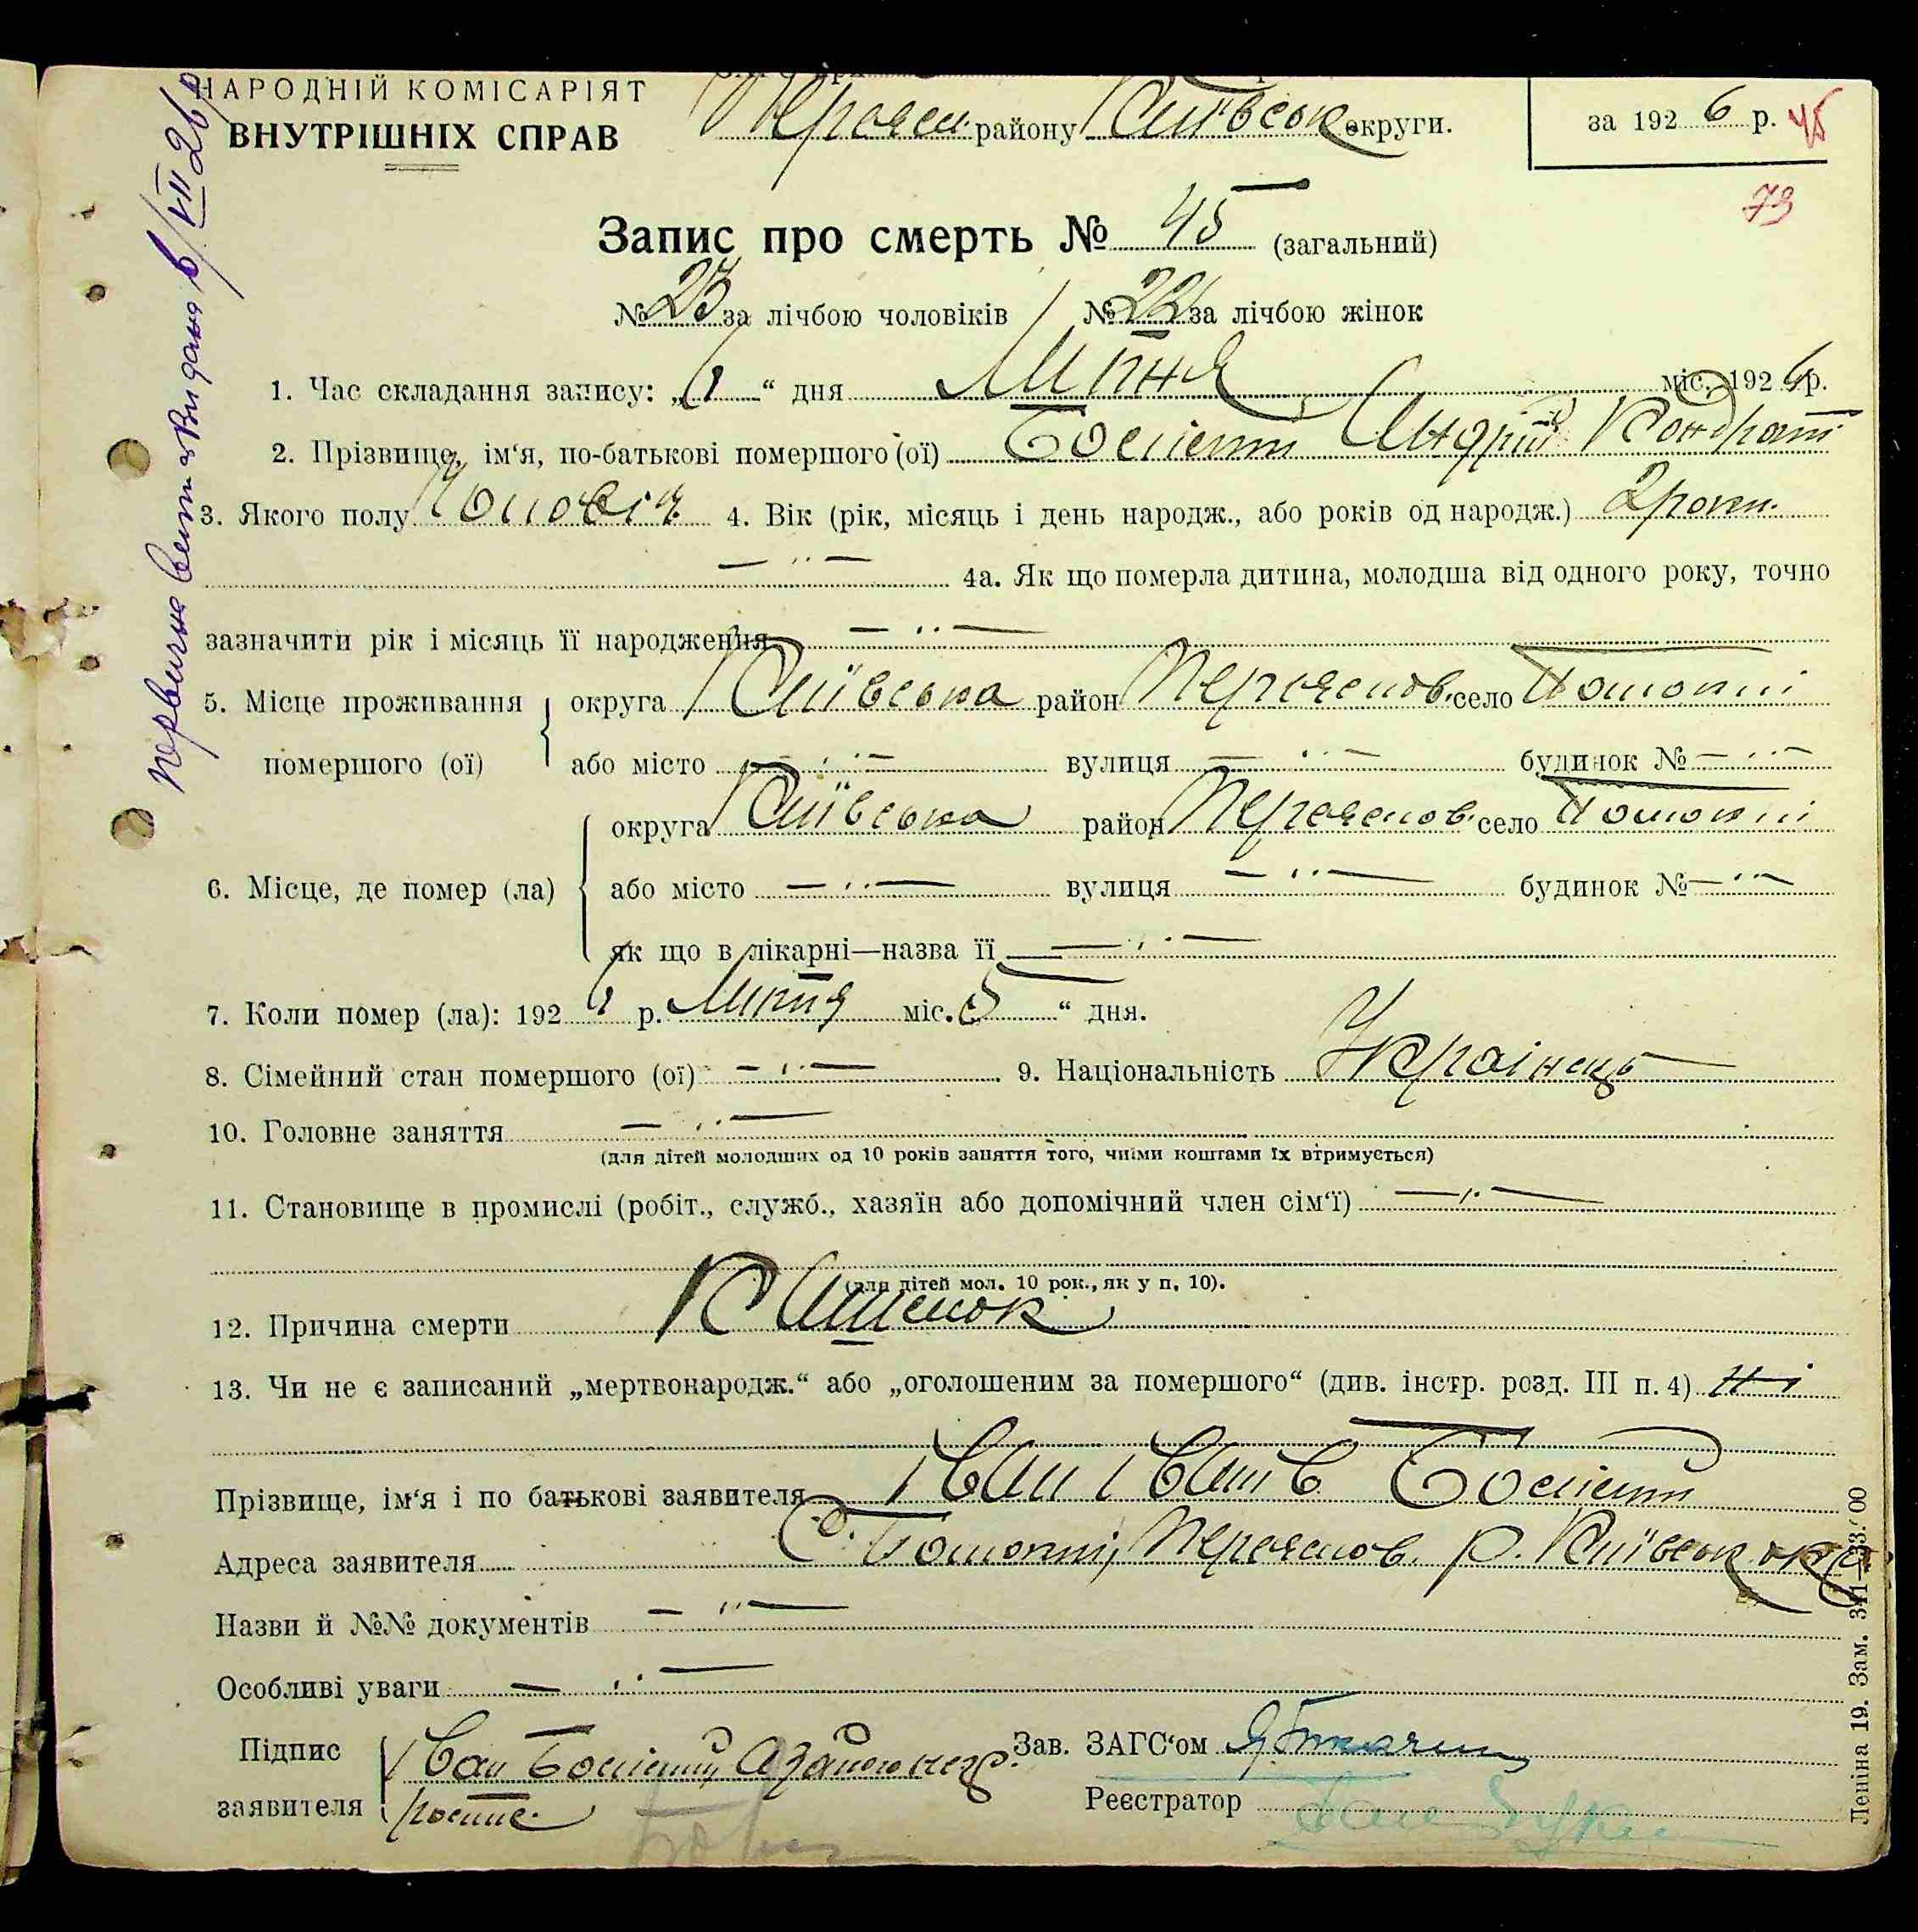 НАРОДНІЙ КОМІСАРІЯТ
ВНУТРІШНІХ СПРАВ
району Київськ округи.
за 1926 р. 45
73
Запис про смерть № 45 (загальний)
№ 23 за лічбою чоловіків / № 22 за лічбою жінок
1. Час складання запису: „6“ дня Липня міс. 1926 р.
2. Прізвище, ім‘я, по-батькові помершого (ої) Андрій Кондрат
3. Якого полу Чоловіч 4. Вік (рік, місяць і день народж., або років од народж.) 2 роки.
4а. Як що померла дитина, молодша від одного року, точно
зазначити рік і місяць її народження
5. Місце проживання помершого (ої) округа Київська район Переяслов. село
або місто вулиця будинок №
6. Місце, де помер (ла) округа Київська район Переяслов. село
або місто вулиця будинок №
як що в лікарні—назва її
7. Коли помер (ла): 1926 р. Липня міс. 5“ дня.
8. Сімейний стан помершого (ої) 9. Національність Українець
10. Головне заняття
(для дітей молодших од 10 років заняття того, чиїми коштами їх втримується)
11. Становище в промислі (робіт., служб., хазяїн або допомічний член сім‘ї)
(для дітей мол. 10 рок., як у п. 10).
12. Причина смерти Кашлюк
13. Чи не є записаний „мертвонародж.“ або „оголошеним за помершого“ (див. інстр. розд. III п. 4) Ні
Прізвище, ім‘я і по батькові заявителя Іван Іванів
Адреса заявителя С. Переяслов. р. Київськ окр
Назви й №№ документів
Особливі уваги
Підпис заявителя Іван
Зав. ЗАГС‘ом
Реєстратор
Первичне свит. видане 6/VII 26 р
Леніна 19. Зам.